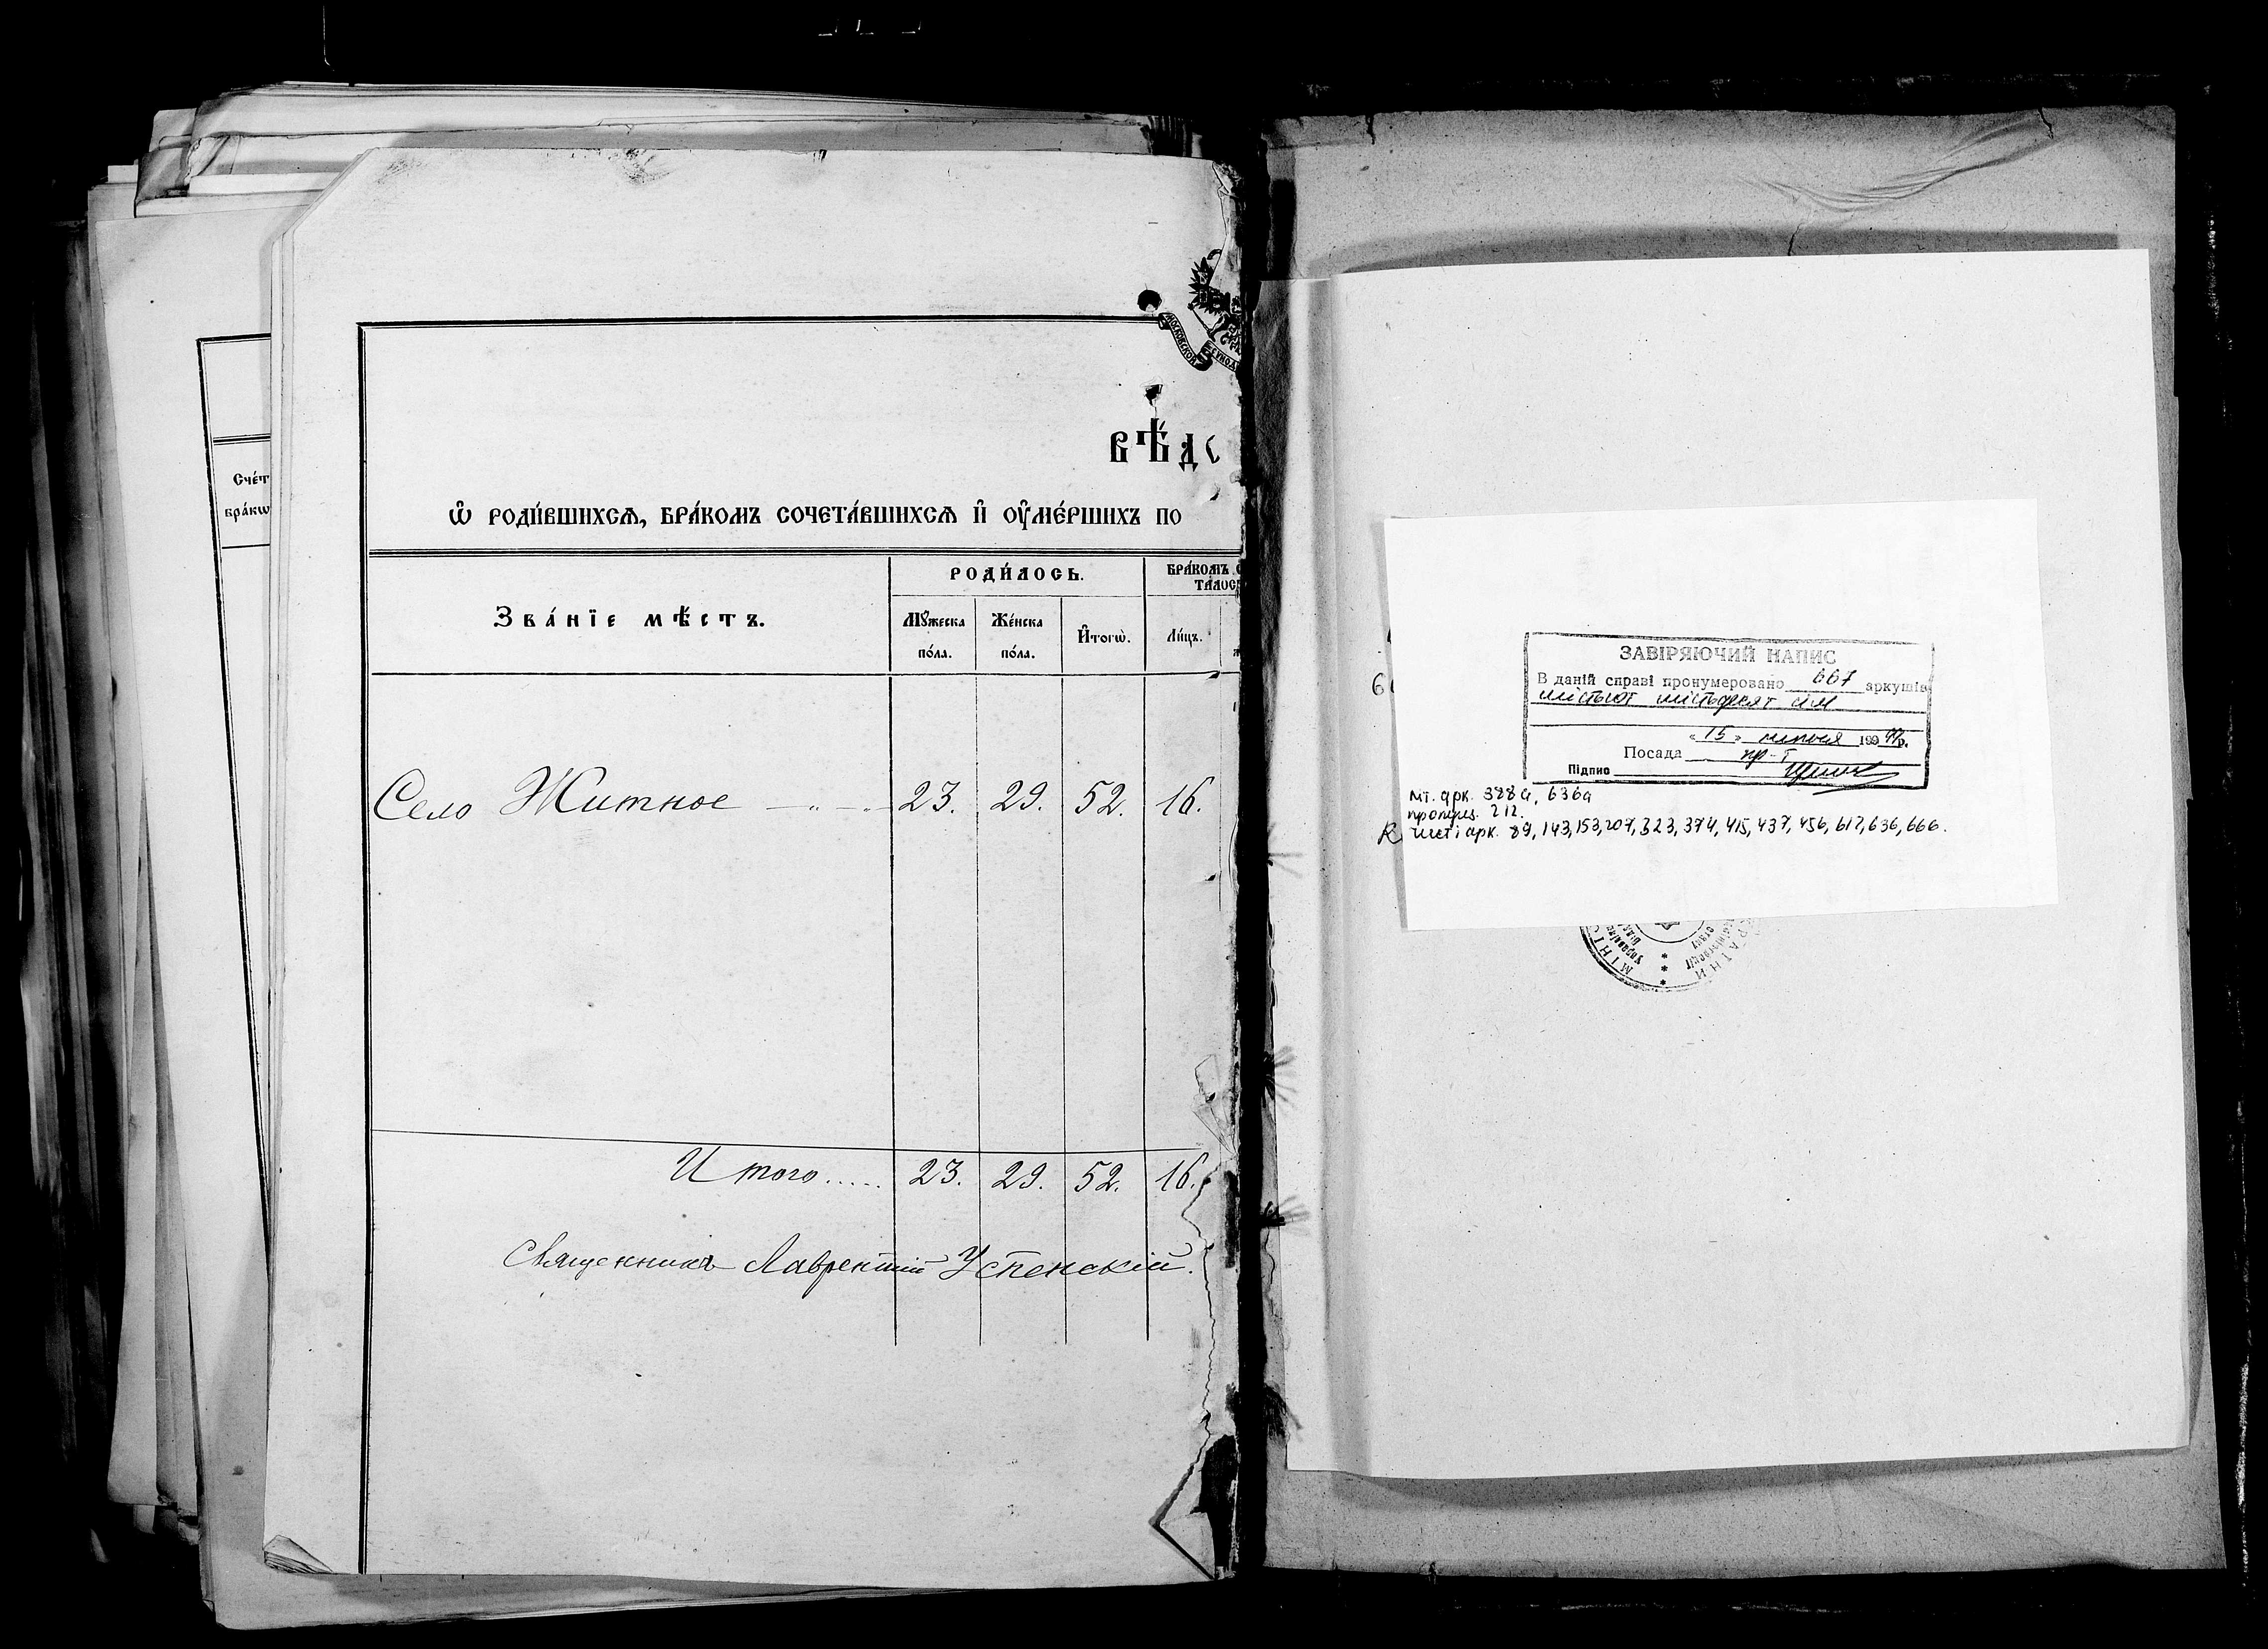 Счéт
брáкѡ
МОСКОВСКОЙ
вѣ́до
ѽ роди́вшихсѧ, брáкомъ сочетáвшихсѧ и҆ ᲂу҆мéршихъ по
Звáнїе мѣ́стъ.
Роди́лось.
Брáкомъ с
тáлос
Мꙋжеска
пóла.
Жéнска
пóла.
И҆тогѡ̀.
Ли́цъ.
Село Житное — „ — „ 23. 29. 52. 16.
Итого..... 23. 29. 52. 16.
Священникъ Лаврентій Успенскій.
ЗАВІРЯЮЧИЙ НАПИС
В даній справі пронумеровано 667 аркушів
шістсот шістдесят сім
„15„ липня 1997р.
Посада
Підпис
літ. арк. 388а, 636а
пропущ. 212.
чисті арк. 89, 143, 153, 207, 323, 374, 415, 437, 456, 617, 636, 666.